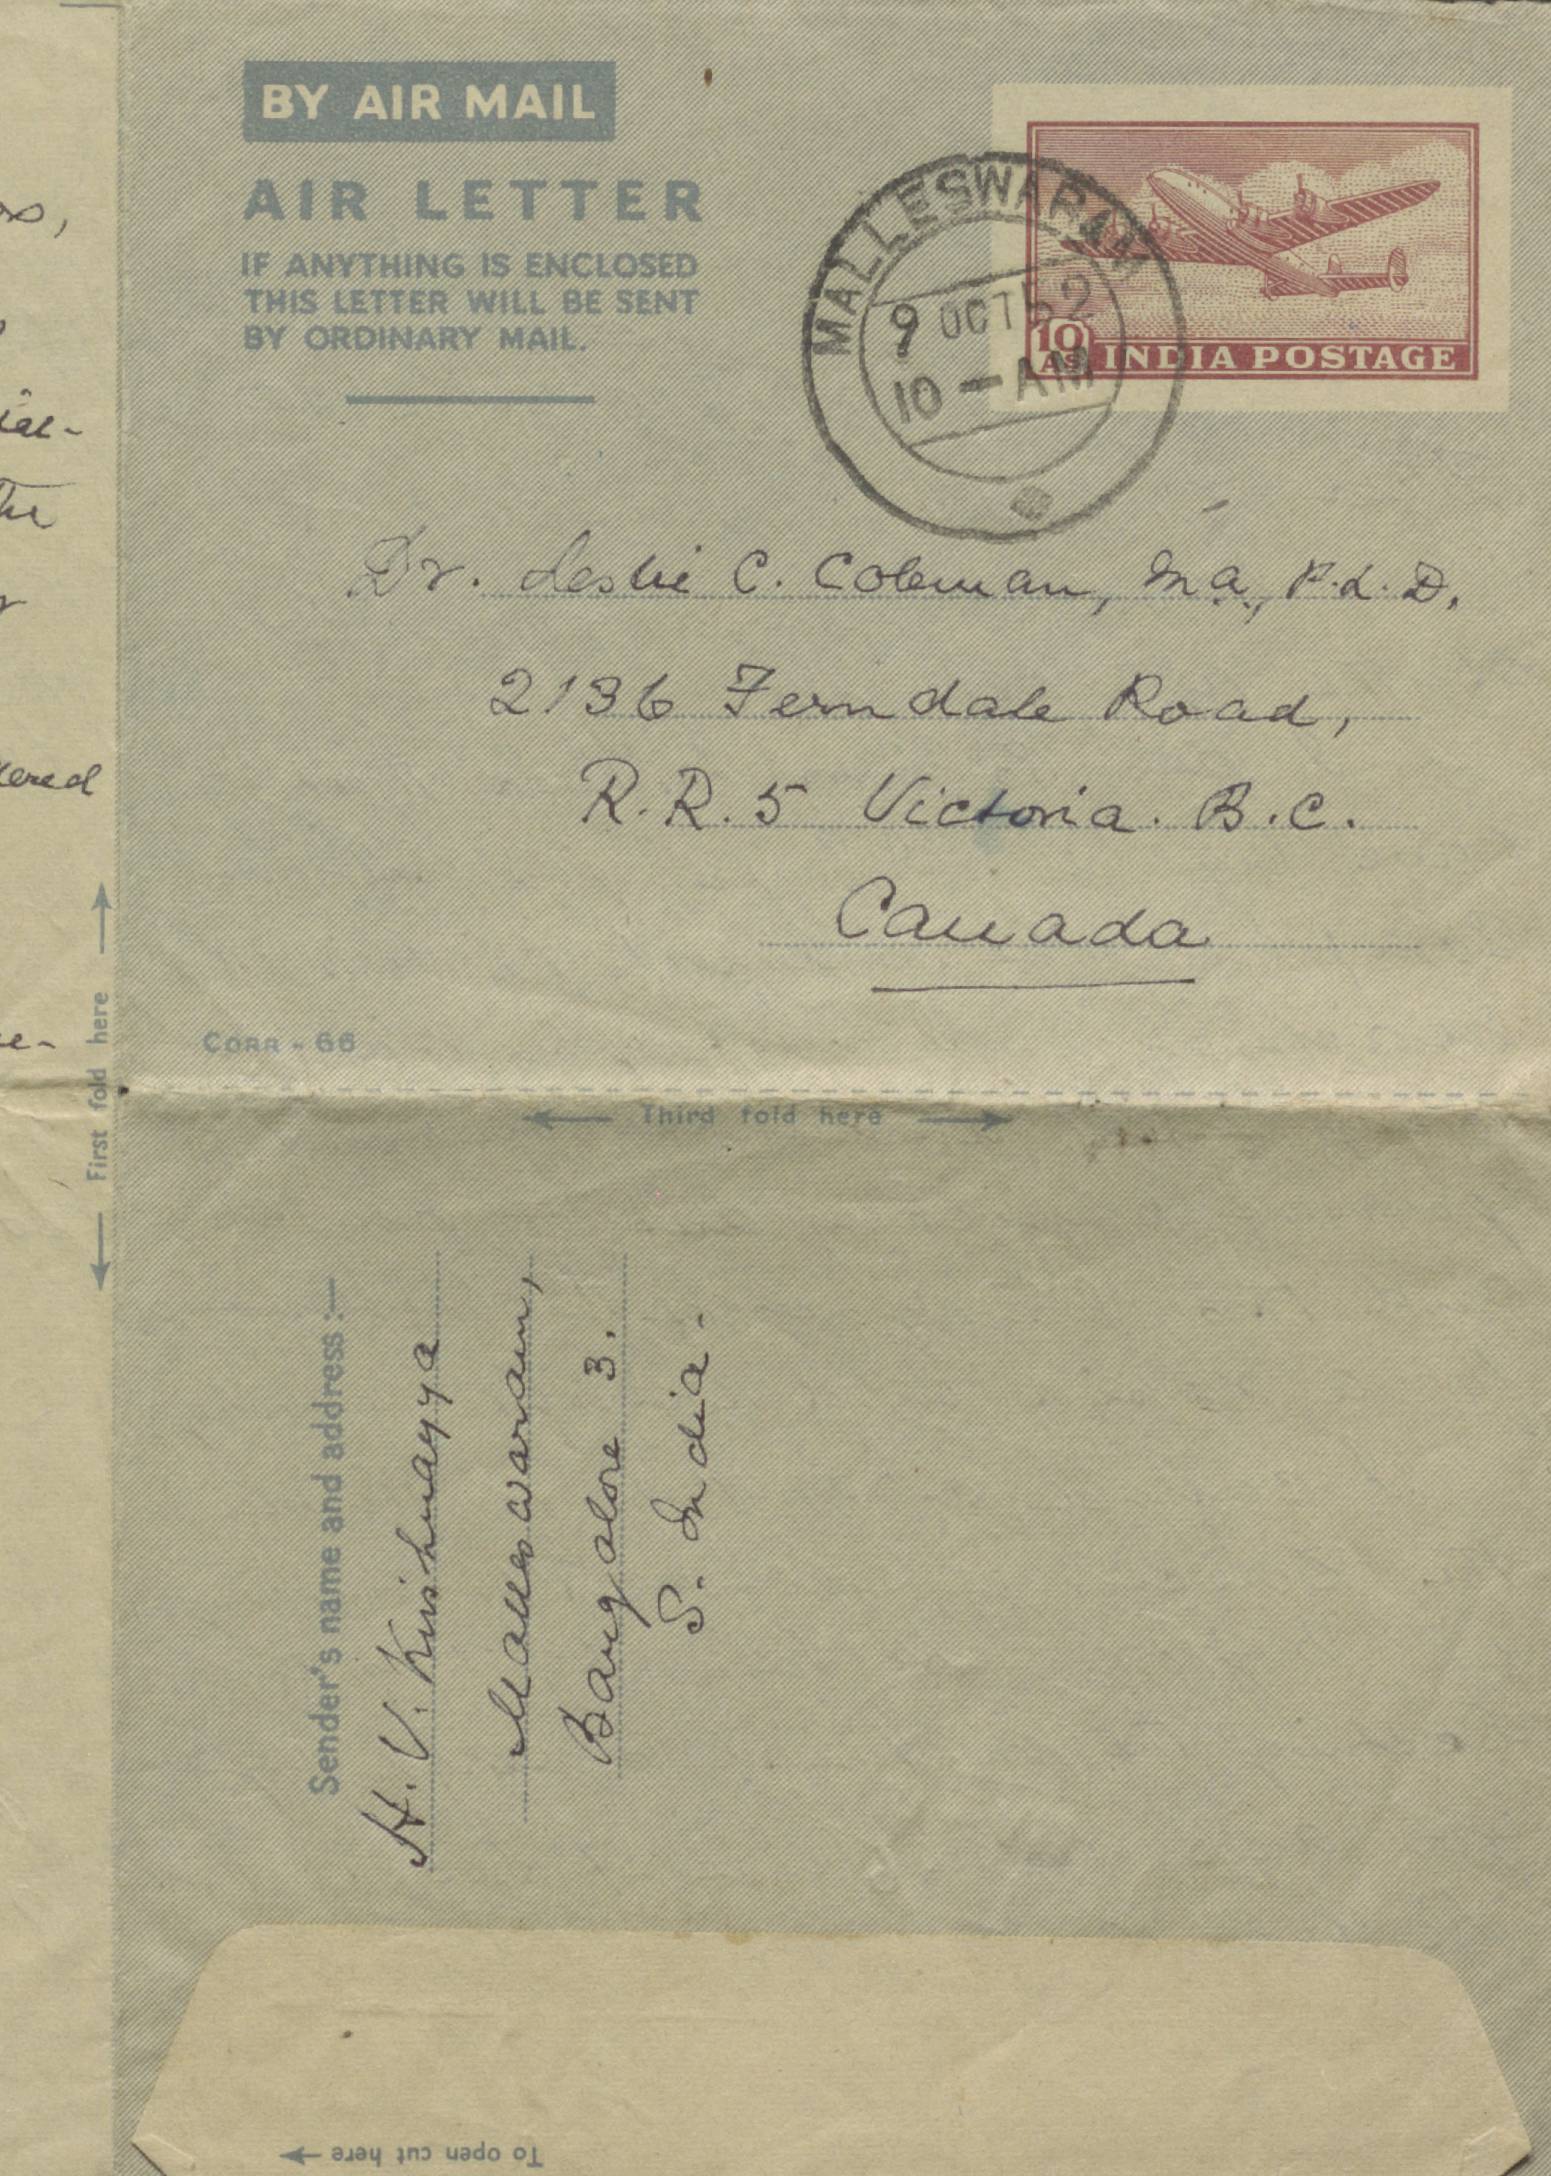 BY AIR MAIL
AIR LETTER
IF ANYTHING IS ENCLOSED
THIS LETTER WILL BE SENT
BY ORDINARY MAIL.
MALLESWARAM
9 OCT 52
10 - AM
10
AS
INDIA POSTAGE
Dr. Leslie C. Coleman, M.a., P.h.D.
2136 Ferndale Road,
R.R. 5 Victoria. B.C.
Canada
CORR - 66
First fold here
Third fold here
Sender's name and address :—
H. V. Krishnayya
Malleswaram,
Bangalore 3.
S. India.
To open cut here
The